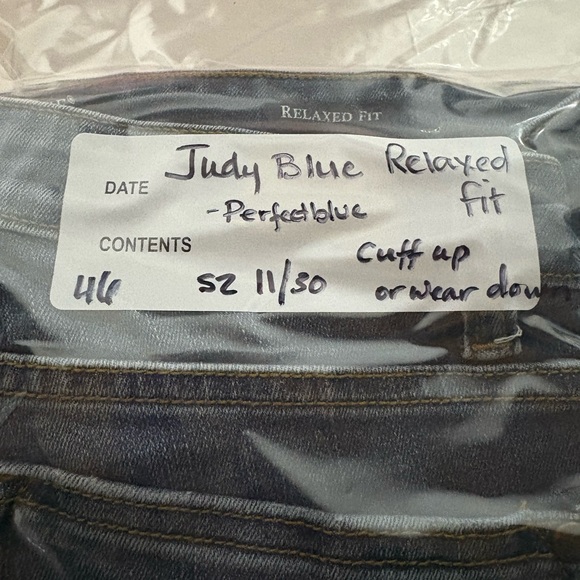 E®
RELAXED FIT
Judy Blue Relaxed fit
DATE
-Perfectblue
CONTENTS
Cuff up
46 sz 11/30 or wear down